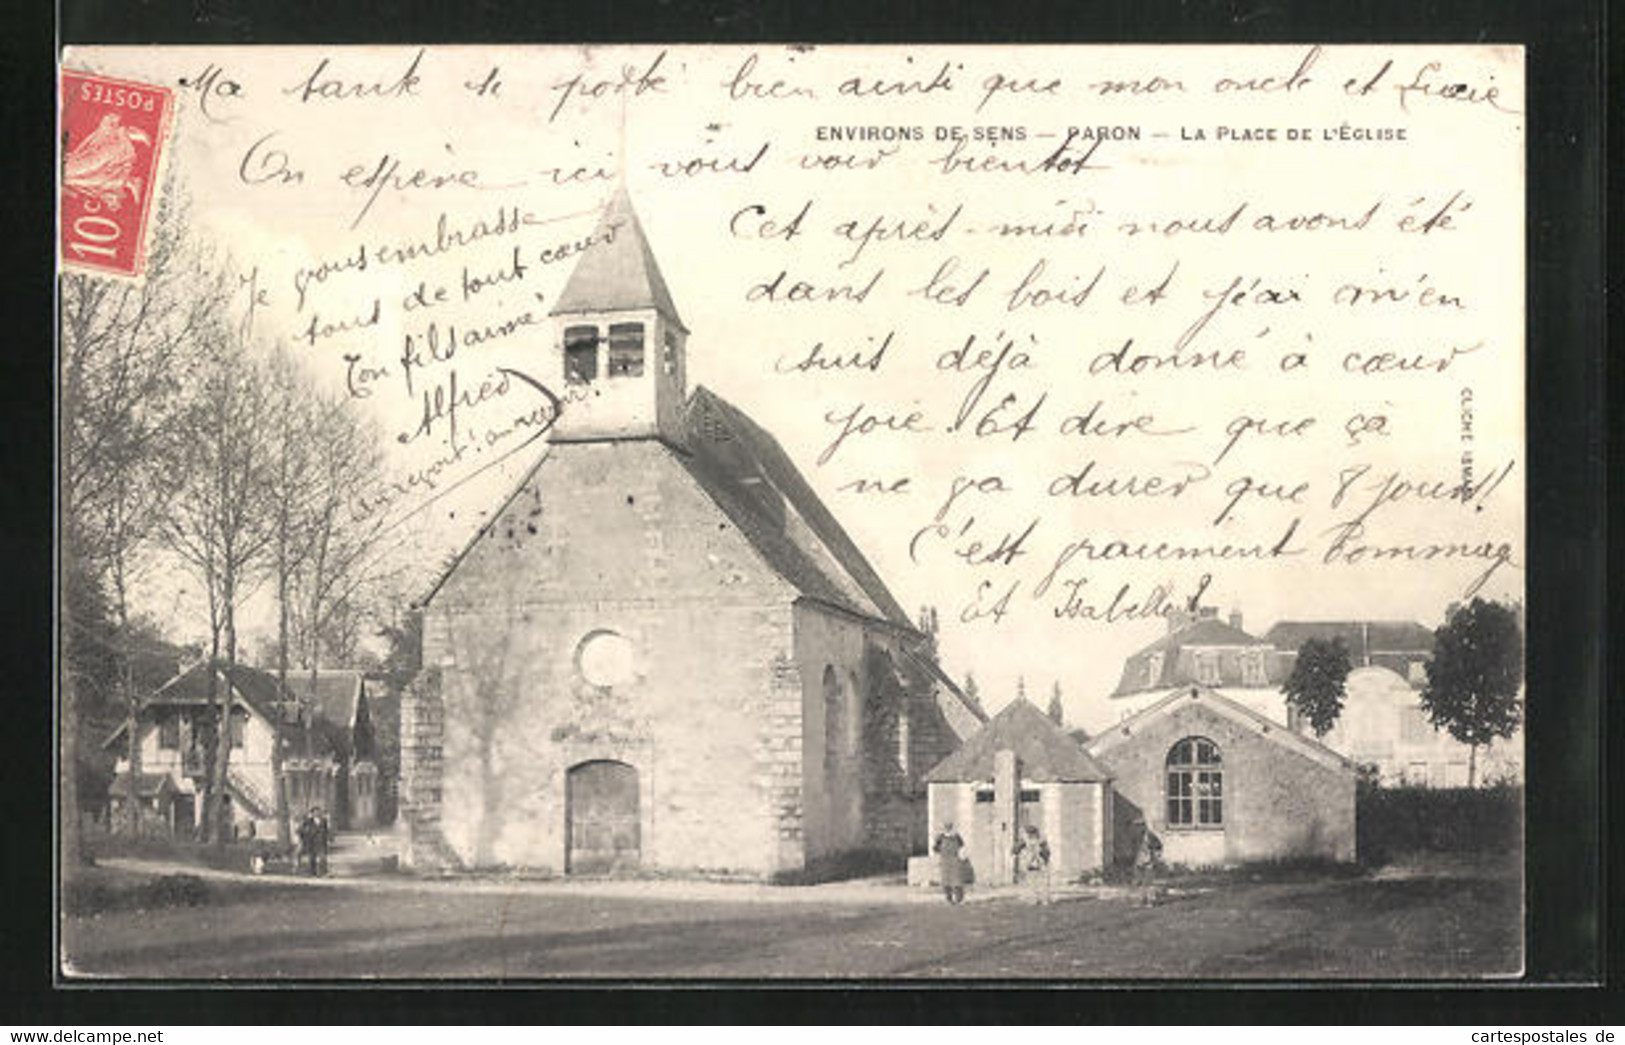 POSTES
10c
Ma tante se porte bien ainsi que mon oncle et Lucie
ENVIRONS DE SENS — PARON — LA PLACE DE L'ÉGLISE
On espère ici vous voir bientôt
Cet après-midi nous avons été
dans les bois et j'ai m'en
suis déjà donné à cœur
joie. Et dire que çà
ne va durer que 8 jours!
C'est vraiment dommage
Et Isabelle?
Je vous embrasse
tous de tout cœur
Ton fils aimé
Alfred
au revoir!
CLICHÉ
cartespostales de